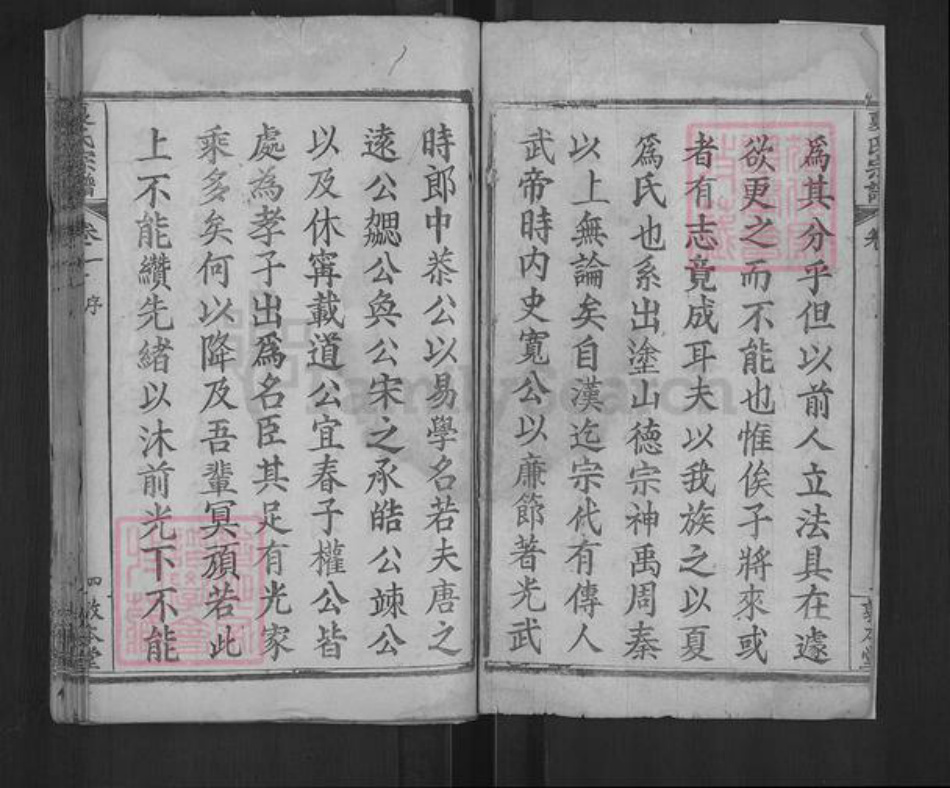 為其分乎但以前人立法具在遽
欲更之而不能也惟俟子將來或
者有志竟成耳夫以我族之以夏
爲氏也系出塗山德宗神禹周秦
以上無論矣自漢迄宗代有傳人
武帝時内史寬公以廉節著光武
時郎中恭公以易學名若夫唐之
遠公勰公奐公宋之承皓公竦公
以及休寗載道公宜春子權公皆
處為孝子出爲名臣其足有光家
乘多矣何以降及吾輩冥頑若此
上不能纘先緒以沐前光下不能
氏宗譜
卷一
序
四
敦本堂
FamilySearch